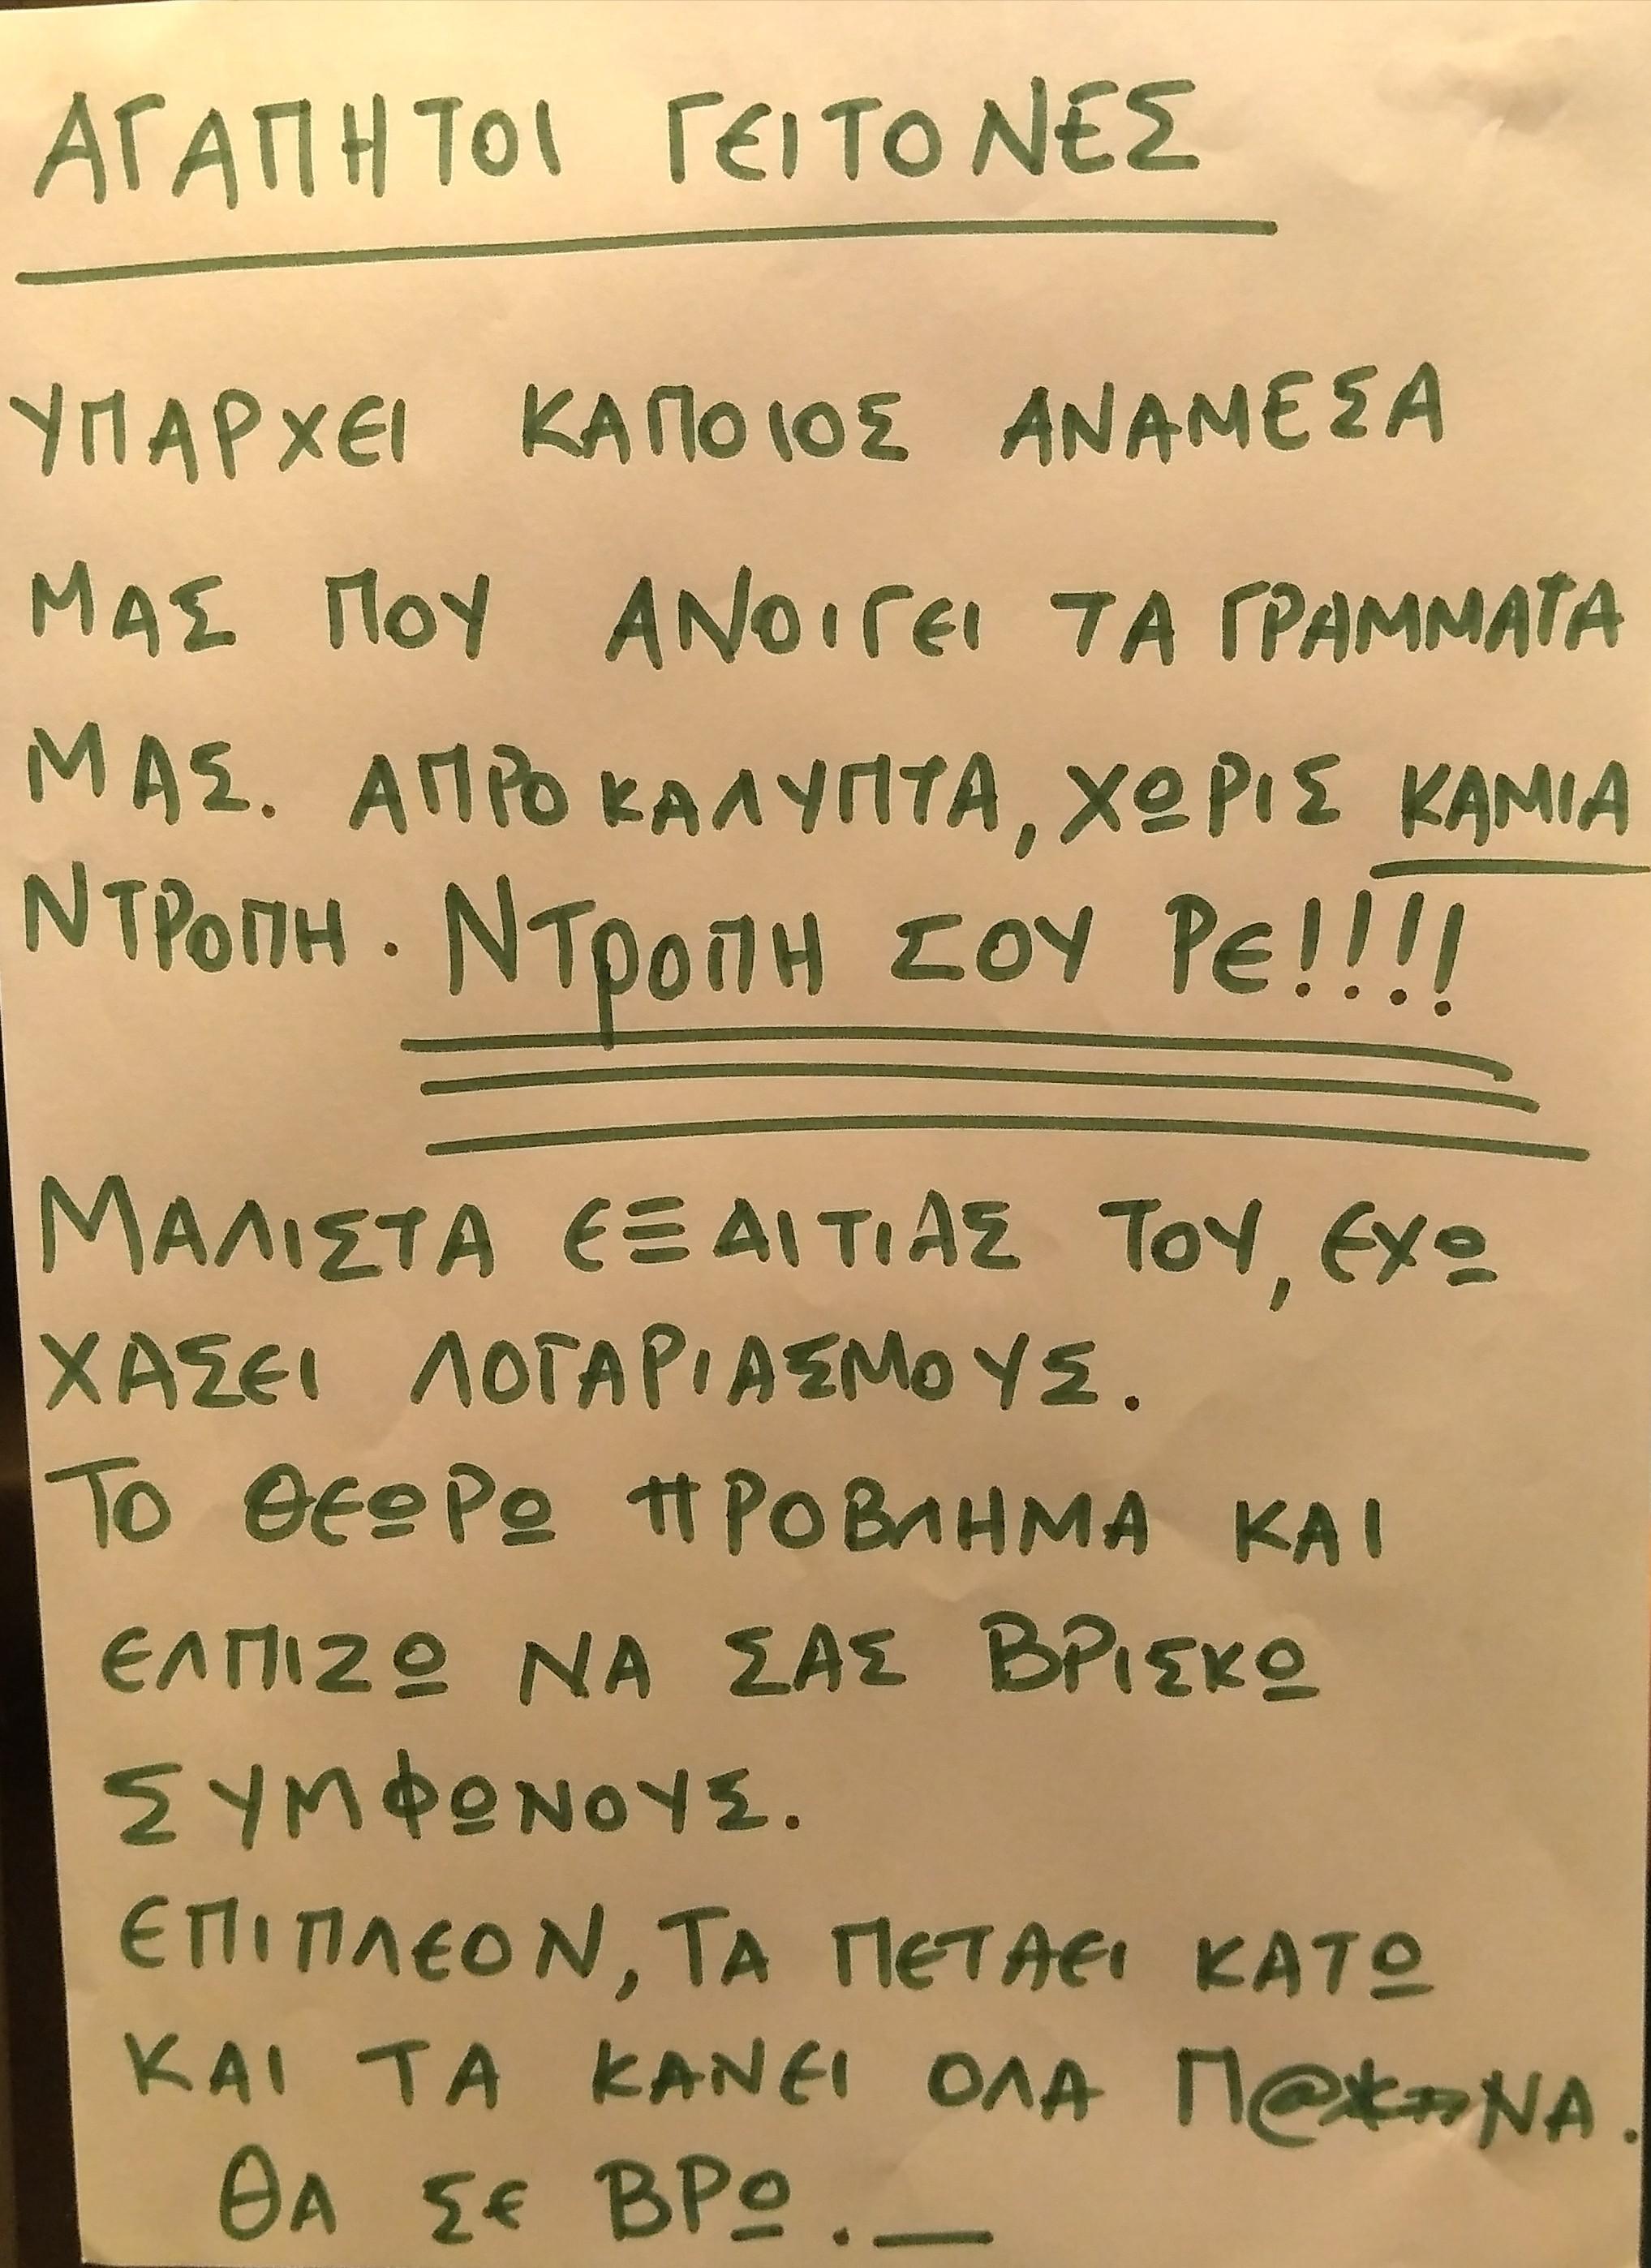 ΑΓΑΠΗΤΟΙ ΓΕΙΤΟΝΕΣ
ΥΠΑΡΧΕΙ ΚΑΠΟΙΟΣ ΑΝΑΜΕΣΑ
ΜΑΣ ΠΟΥ ΑΝΟΙΓΕΙ ΤΑ ΓΡΑΜΜΑΤΑ
ΜΑΣ. ΑΠΡΟΚΑΛΥΠΤΑ, ΧΩΡΙΣ ΚΑΜΙΑ
ΝΤΡΟΠΗ. ΝΤΡΟΠΗ ΣΟΥ ΡΕ!!!!
ΜΑΛΙΣΤΑ ΕΞΑΙΤΙΑΣ ΤΟΥ, ΕΧΩ
ΧΑΣΕΙ ΛΟΓΑΡΙΑΣΜΟΥΣ.
ΤΟ ΘΕΩΡΩ ΠΡΟΒΛΗΜΑ ΚΑΙ
ΕΛΠΙΖΩ ΝΑ ΣΑΣ ΒΡΙΣΚΩ
ΣΥΜΦΩΝΟΥΣ.
ΕΠΙΠΛΕΟΝ, ΤΑ ΠΕΤΑΕΙ ΚΑΤΩ
ΚΑΙ ΤΑ ΚΑΝΕΙ ΟΛΑ Π@*»ΝΑ.
ΘΑ ΣΕ ΒΡΩ.